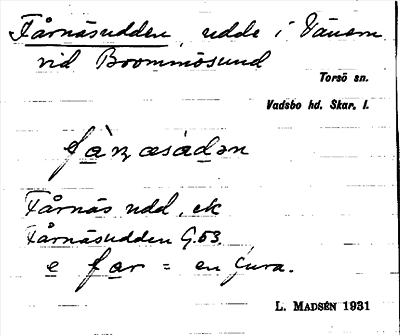 Fårnäsudden, udde i Vänern
vid Brommösund
Torsö sn.
Vadsbo hd. Skar. l.
fàɳæsàdən
Fårnäs udd, ek
Fårnäsudden G.53.
e far = en fura.
L. MADSÉN 1931